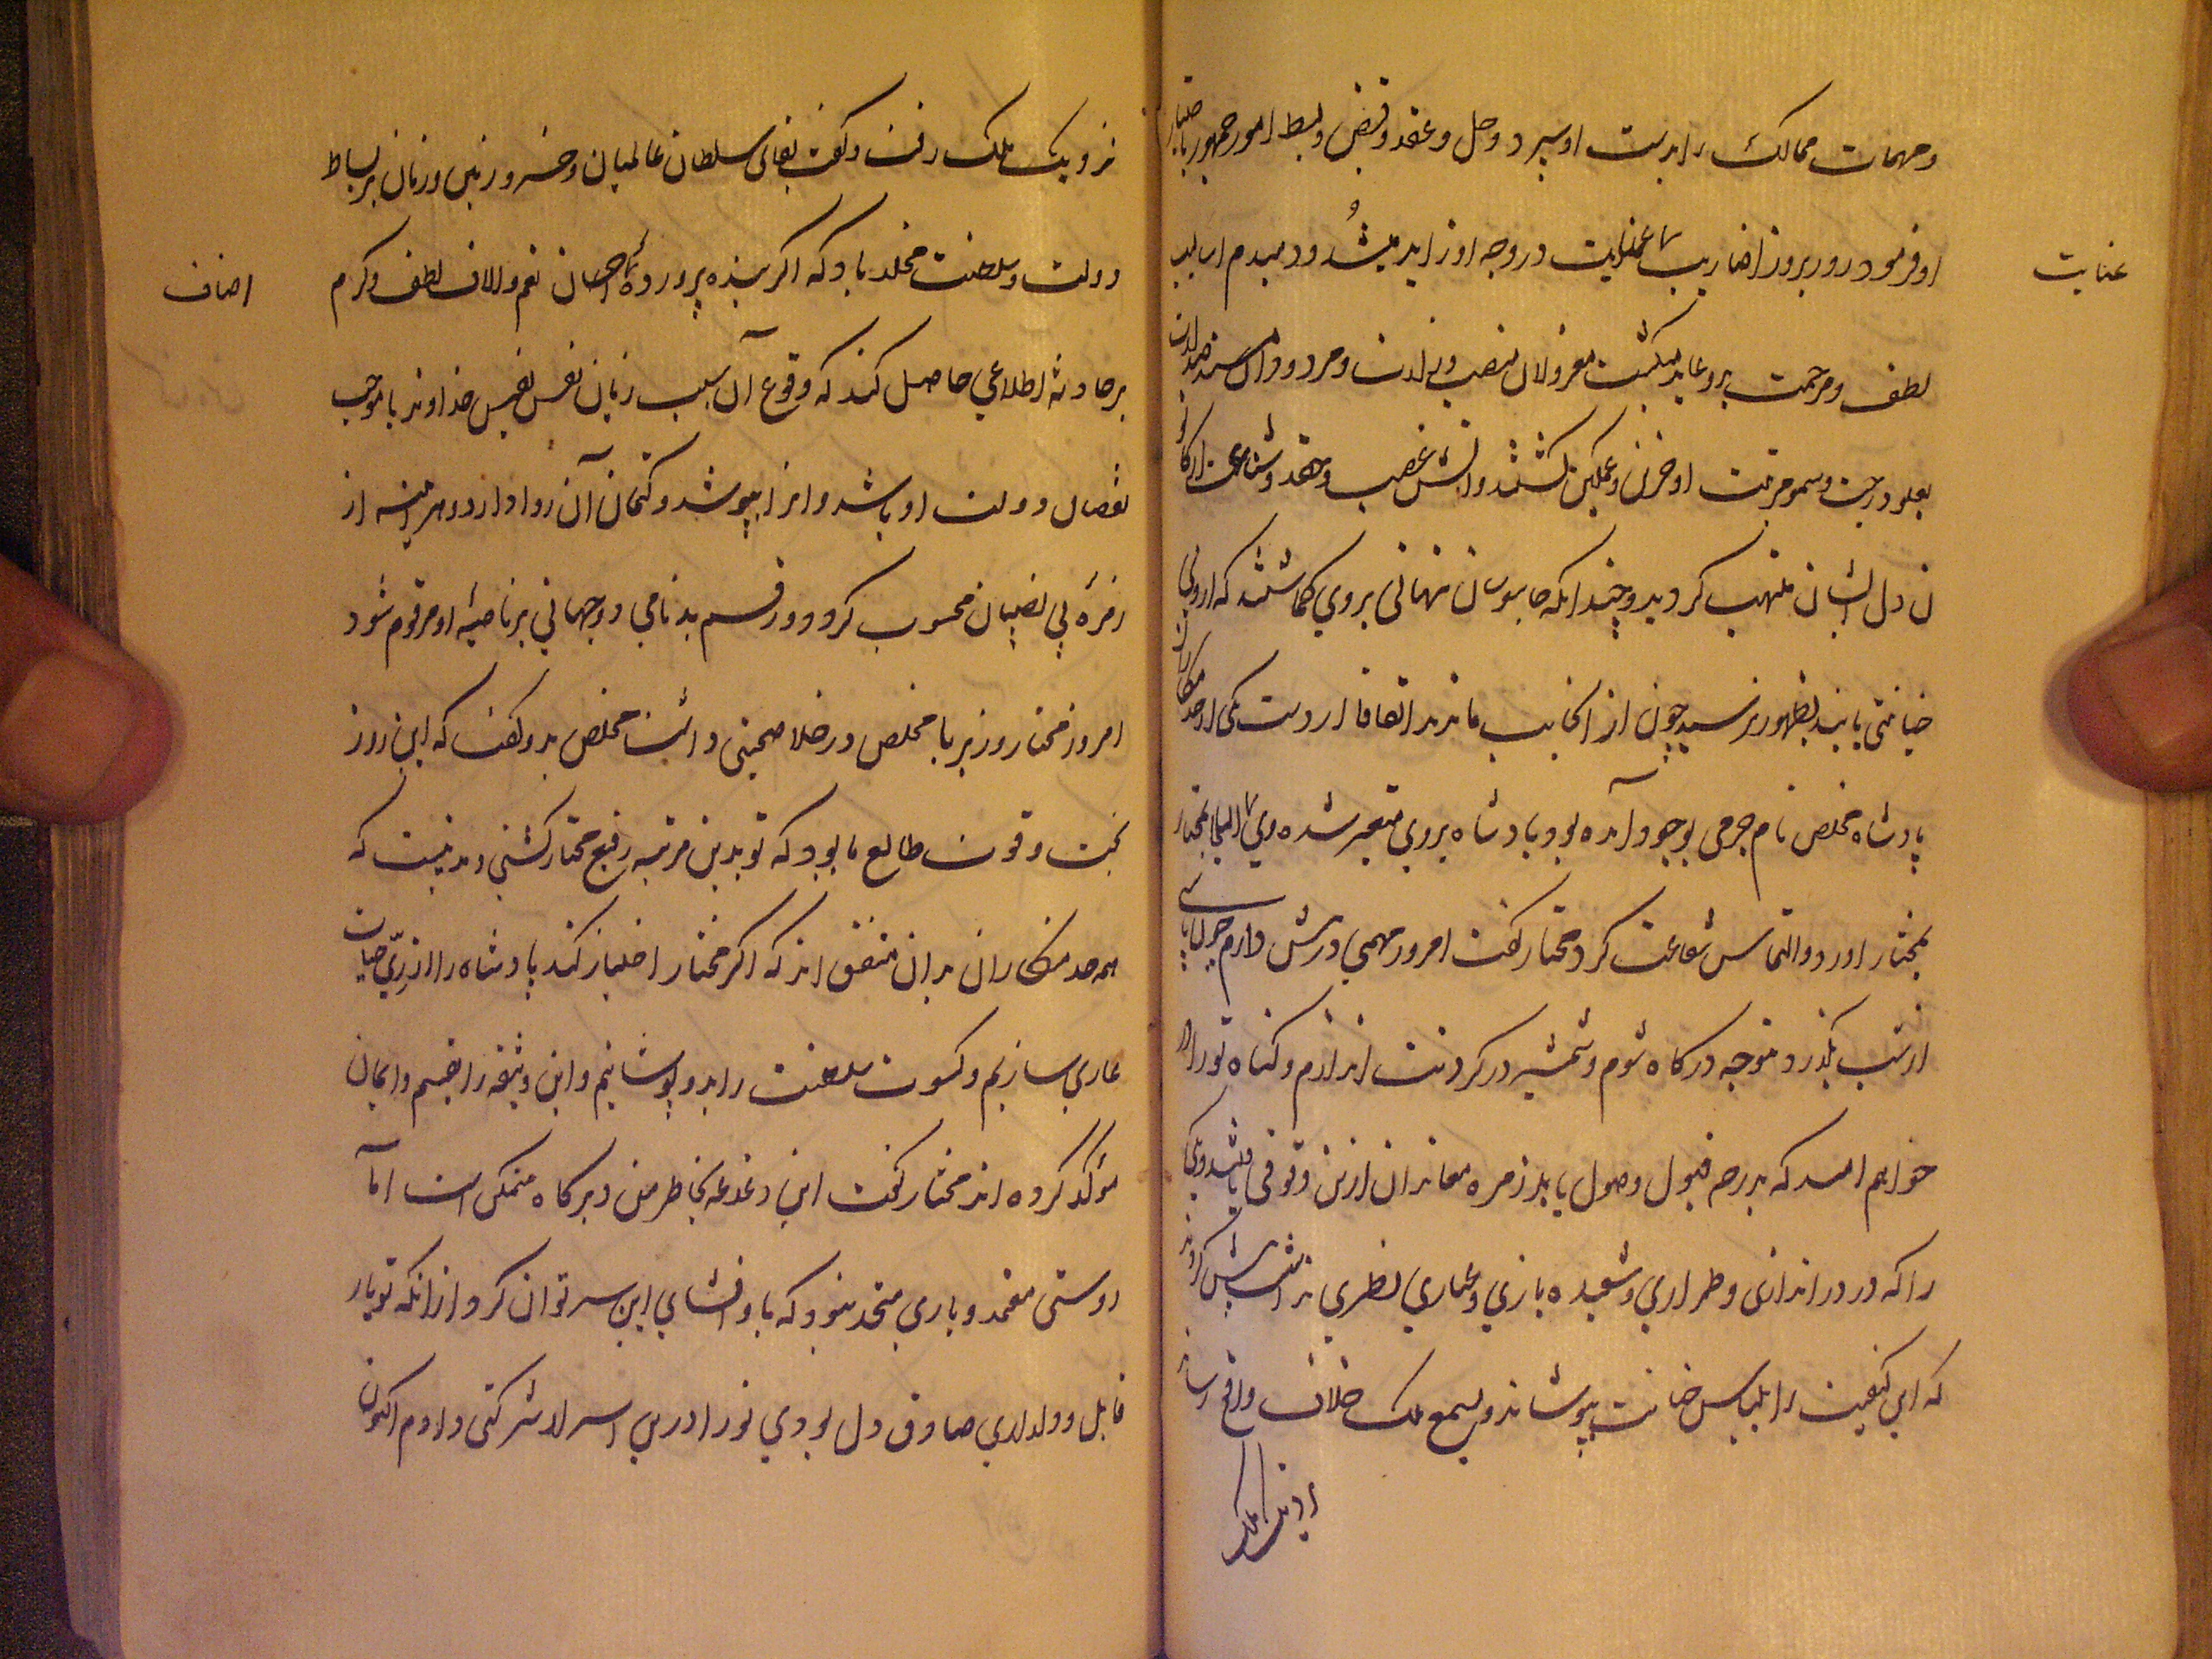 و مهمات ممالک را بدست او سپرد و حل و عقد و قبض و بسط امور جمهور باختیار
او فرمود روز بروز اضاریب عنایت در وجه او زاید میشُد و دمبدم اسالیب
عنایت
لطف و مرحمت برو عاید میکشت معزولان منصب وزارت و مردودان مسند صدارت
بعلو درجت و سمو مرتبت او حزین و غمکین کشتند و آتش غضب و حقد و شناعت در کانو
ن دل ایشان ملتهب کردید و چندانکه جاسوسان نهانی بروی کماشتند که از وی
خیانتی یابند بظهور نرسید چون از انجانب ماندند اتفاقا از دست یکی از خدمتکاران
پادشاه مخلص نام جرمی بوجود آمده بود و پادشاه بروی متغیر شده وی التجا بمختار
بمختار اورد و التماس شفاعت کرد مختار کفت امروز مهمی در پیش دارم چون پاسی
از شب بکذرد متوجه درکاه شوم و شمشیر در کردنت اندازم و کناه تو را در
خواهم امید که بدرجه قبول وصول یابد زمره معاندان ازین وقوفی یافتند و یکی
را که در در اندازی و طراری و شعبده بازی و عیاری نظری نداشت پیش کردند
که این کیفیت را بلباس خیانت بپوشاند و بسمع ملک خلاف واقع رساند
نزدیک ملک
نزدیک ملک رفت و کفت بقای سلطان عالمیان و خسرو زمین و زمان بر بساط
دولت و سلطنت مخلد باد که اکر بنده پرورده احسان نعم و الاف لطف و کرم
اضاف
بر حادثه اطلاعی حاصل کند که وقوع آن سبب زیان نفس نفیس خداوند یا موجب
نقصان دولت او باشد و انرا بپوشد و کتمان آن روا دارد هراینه از
زمرهٔ بی نصیبان محسوب کردد و رقم بدنامی دو جهانی بر ناصیهٔ او مرقوم شود
امروز مختار وزیر با مخلص در خلا صحبتی داشت مخلص بدو کفت که این روز
بخت و قوت طالع ما بود که تو بدین مرتبه رفیع مختار کشتی و مدتیست که
همه خدمتکاران بدان متفق اند که اکر مختار اختیار کند پادشاه را از زیّ حیات
عاری سازیم و کسوت سلطنت را بدو پوشانیم و این وثیقه را بقسم و ایمان
مؤکد کرده اند مختار کفت این دغدغه بخاطر من دیرکاه متمکن است اما
دوستی معتمد و یاری متحد نبود که با او افشای این سر توان کرد از انکه تو یار
قابل و دلداری صادق دل بودی تو را درین اسرار شرکتی دادم اکنون